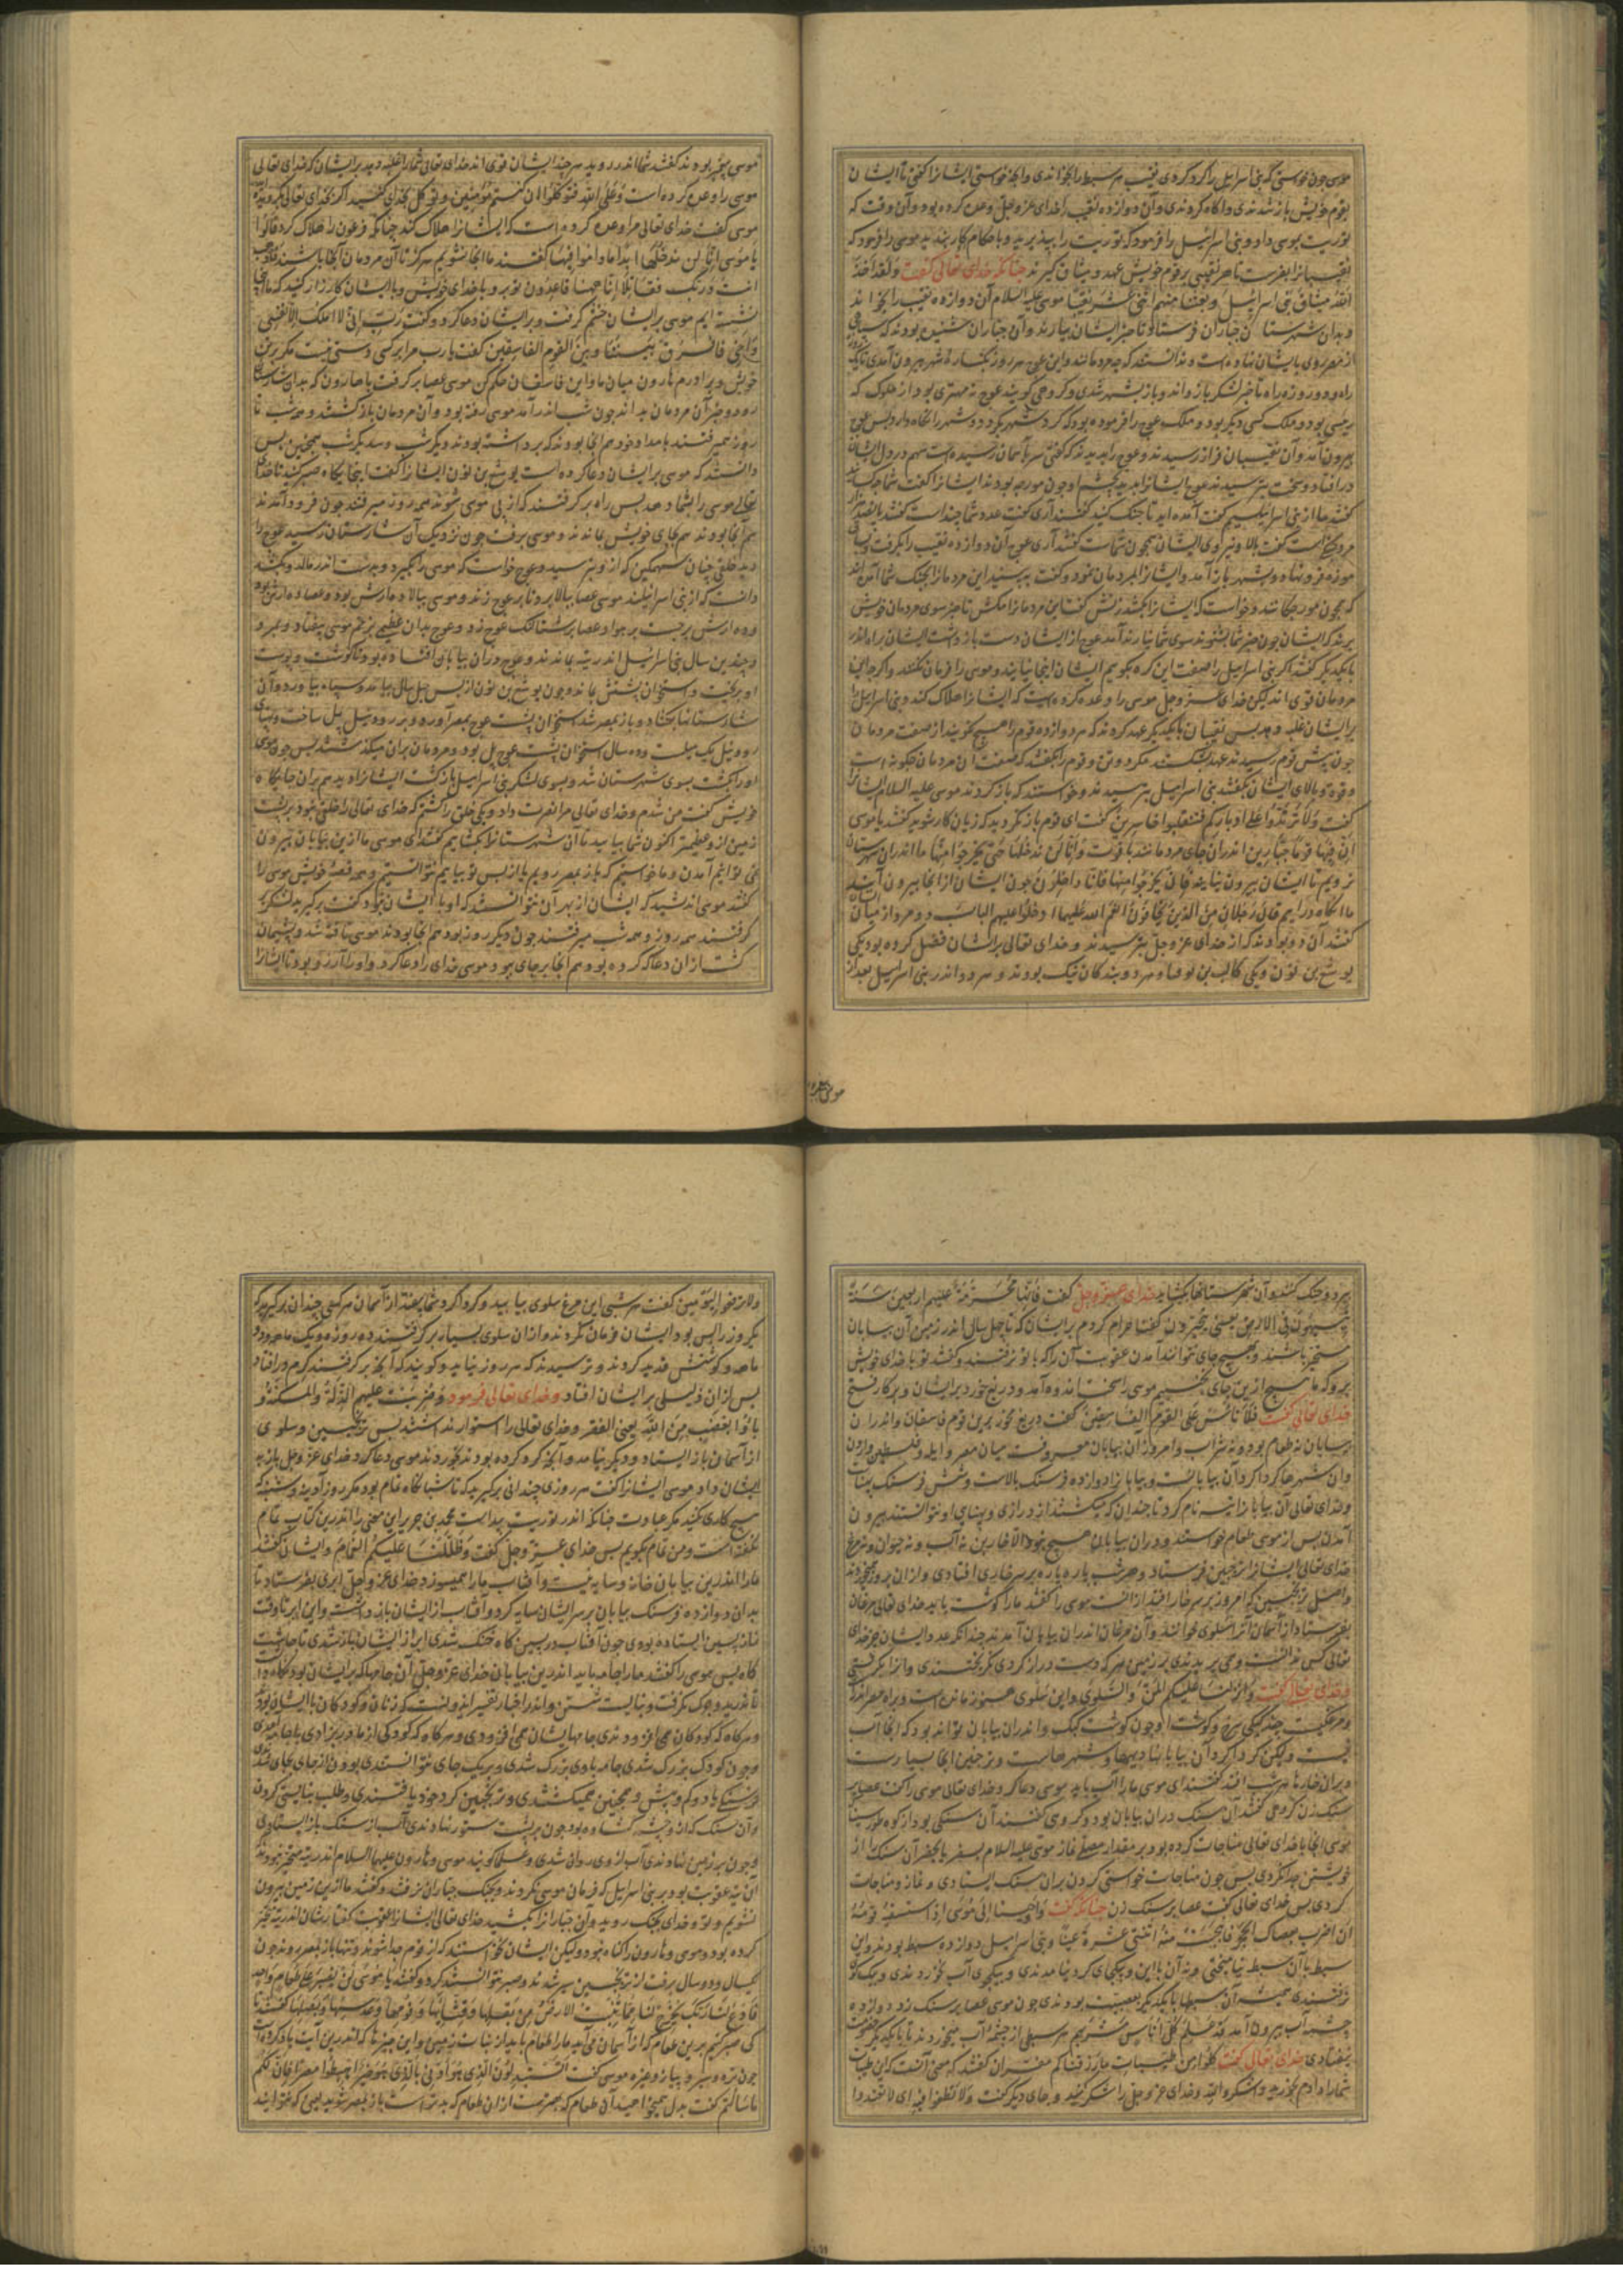 موسی چون خواستی که بنی اسرائیل را کرد کردی نقیب هر سبط را بخواندی و آنچه خواستی ایشانرا گفتی تا ایشان
بقوم خویش باز شدندی و آگاه کردندی و آن دوازده نقیب را خدای عزوجل وعده کرده بود و آن وقت که
توریت بموسی داد و بنی اسرائیل را فرمود که توریت را بپذیرید و باحکام کار بندید موسی را فرمود که
نقیبانرا بفرست تا هر نقیبی بر قوم خویش عهد و میثاق گیرند چنانکه خدای تعالی گفت ولقد اخذ
الله میثاق بنی اسرائیل وبعثنا منهم اثنی عشر نقیبا موسی علیه السلام آن دوازده نقیب را بخواند
وبدان شهرستان جباران فرستاد تا خبر ایشان بیارند و آن جباران
راه و دو روزه راه تا خبر لشکر باز داند و باز بشهر شدی و گروهی گویند عوج نه مهتری بود از ملوک که
رئیسی بود و ملک کسی دیگر بود و ملک عوج را فرموده بود که گرد شهر
بیرون آمد و آن نقیبان فراز رسیدند و عوج را بدیدند که گفتی سر باسمان رسیده است سهم در دل ایشان
در افتاد و سخت بترسیدند عوج ایشانرا بدید بچشم او چون مورچه بودند ایشانرا گفت شما چه کسانید
گفتند ما از بنی اسرائیلیم گفت آمده اید تا جنک کنید گفتند آری گفت عدد شما چند است
مردیکه است گفت بالا و نیروی ایشان همچون شماست گفتند آری عوج آن دوازده نقیب را بگرفت و
موزه فرو نهاد و بشهر باز آمد و ایشانرا بمردمان نمود و گفت ببینید این مردمانرا بجنک شما آمده اند
که همچون مورچکانند و خواست که ایشانرا بکشد زنش گفت این مردمانرا مکش تا خبر سوی مردمان خویش
برند که ایشان چون خبر شما بشنوند سوی شما نیارند آمد عوج از ایشان دست بازداشت ایشان براه اندر
با یکدیگر گفتند اگر بنی اسرائیل را صفت این گروه بگوییم ایشان اینجا نیایند و موسی را فرمان نکنند و اگر چه این
مردمان قوی اند لیکن خدای عزوجل موسی را وعده کرده است که ایشانرا هلاک کند و بنی اسرائیل را
بر ایشان غلبه دهد پس نقیبان با یکدیگر عهد کردند که هر دوازده قوم را هیچ نگویند از صفت مردمان
چون پیش قوم رسیدند عهد بشکستند مگر دو تن و قوم را بگفتند که صفت آن مردمان چگونه است
وقوة وبالای ایشان بگفتند بنی اسرائیل بترسیدند و خواستند که باز گردند موسی علیه السلام ایشانرا
گفت ولا ترتدوا علی ادبارکم فتنقلبوا خاسرین گفت ای قوم باز مگردید که زیان کار شوید گفتند یا موسی
ان فیها قوما جبارین اندر آن جای مردمانند با قوت وانا لن ندخلها حتی یخرجوا منها ما اندر آن شهرستان
نرویم تا ایشان بیرون نیایند فان یخرجوا منها فانا داخلون چون ایشان از آنجا بیرون آیند
ما آنگاه در آییم قال رجلان من الذین یخافون انعم الله علیهما ادخلوا علیهم الباب دو مرد از میان
گفتند آن دو بودند که از خدای عزوجل بترسیدند و خدای تعالی بر ایشان فضل کرده بود یکی
یوشع بن نون و یکی کالب بن یوفنا و هر دو بندگان نیک بودند و هر دو اندر بنی اسرائیل بعد از
موسی پیغمبر
موسی پیغمبر بودند گفتند شما اندر روید هر چند ایشان قوی اند خدای تعالی شما را غلبه دهد بر ایشان که خدای تعالی
موسی را وعده کرده است وعلی الله فتوکلوا ان کنتم مؤمنین وتوکل بخدای کنید اگر بخدای تعالی گرویده اید
موسی گفت خدای تعالی مرا وعده کرده است که ایشانرا هلاک کند چنانکه فرعون را هلاک کرد قالوا
یا موسی انا لن ندخلها ابدا ما داموا فیها گفتند ما آنجا نشویم هرگز تا آن مردمان آنجا باشند فاذهب
انت وربک فقاتلا انا ههنا قاعدون تو برو با خدای خویش و با ایشان کارزار کنید که ما اینجا
نشسته ایم موسی بر ایشان خشم گرفت و بر ایشان دعا کرد و گفت رب انی لا املک الا نفسی
واخی فافرق بیننا وبین القوم الفاسقین گفت یا رب مرا بر کسی دستی نیست مگر برتن
خویش و برادرم هارون میان ما و این فاسقان حکم کن موسی عصا بر گرفت با هارون که بدان شارستان
رود و خبر آن مردمان بداند چون شب اندر آمد موسی رفته بود و آن مردمان باز گشتند و همه شب تا
روز همی رفتند بامداد خود هم آنجا بودند که برداشته بودند دیگر شب و سدیگر شب همچنین پس
دانستند که موسی بر ایشان دعا کرده است یوشع بن نون ایشانرا گفت اینجایگاه صبر کنید تا خدای
تعالی موسی را بشما دهد پس راه بر گرفتند که از پی موسی شوند همه روز میرفتند چون فرود آمدند
هم آنجا بودند هم بجای خویش بماندند و موسی برفت چون نزدیک آن شارستان رسید عوج را
دید خلقی چنان سهمگین که از او بترسید و عوج خواست که موسی را بگیرد و بدست اندر مالد و بکشد
دانست که از بنی اسرائیلند موسی عصا ببالا برد تا بر عوج زند و موسی ببالا ده ارش بود و عصا ده ارش بود
و ده ارش بر جست بر هوا و عصا بر شتالنک عوج زد و عوج بدان عظیمی بزخم موسی بیفتاد و بمرد و
و چندین سال بنی اسرائیل اندر تیه بماندند و عوج در آن بیابان افتاده بود تا گوشت و پوست
او بریخت و استخوان پشتش بماند و چون یوشع بن نون از پس چهل سال بیامد و سپاه بیاورد و آن
شارستانها بگشاد و باز بمصر شد استخوان پشت عوج بمصر آورد و بر رود نیل پل ساخت
رود نیل یک میلست و ده سال استخوان پشت عوج پل بود و مردمان بر آن میگذشتند پس چون موسی
او را بکشت بسوی شهرستان شد و بسوی لشکر بنی اسرائیل بازگشت ایشانرا دید هم بر آن جایگاه
خویش گفت من شدم و خدای تعالی مرا نصرت داد و یکی خلق را کشتم که خدای تعالی را خلقی نبود بر پشت
زمین از او عظیمتر اکنون شما بیایید تا آن شهرستانرا بگشاییم گفتند ای موسی ما ازین بیابان بیرون
می نتوانیم آمدن و ما خواستیم که باز بمصر رویم یا از پس تو بیاییم نتوانستیم و همه قصه خویش موسی را
گفتند موسی اندیشید که ایشان از بهر آن نتوانستند که او با ایشان نبود گفت برگیرید لشکر
گرفتند همه روز و همه شب میرفتند چون دیگر روز بود هم آنجا بودند موسی تافته شد و پشیمان
گشت از آن دعا که کرده بود و هم آنجا بر جای ببود و موسی خدای را دعا کرد و او را آرزو بود تا ایشانرا
ببرد و جنک کند و آن شهرستانها بگشاید خدای عزوجل گفت فانها محرمة علیهم اربعین سنة
یتیهون فی الارض یعنی یتحیرون گفتا حرام کردم بر ایشان که تا چهل سال اندر زمین آن بیابان
متحیر باشند و بهیچ جای نتوانند آمدن عقوبت آن را که با تو نرفتند و گفتند تو با خدای خویش
برو که ما هیچ ازین جای نجنبیم موسی را سخت اندوه آمد و دریغ خورد بر ایشان و بر کار فتح
خدای تعالی گفت فلا تاس علی القوم الفاسقین گفت دریغ مخور برین قوم فاسقان و اندر آن
بیابان نه طعام بود و نه شراب و امروز آن بیابان معروفست میان مصر و ایله و فلسطین و اردن
و آن شهرها گرداگرد آن بیابانست و بیابانرا دوازده فرسنک بالاست و شش فرسنک پهنا
و خدای تعالی آن بیابانرا تیه نام کرد تا چندان که میگشتند از درازی و پهنای او نتوانستند بیرون
آمدن پس از موسی طعام خواستند و در آن بیابان هیچ نبود الا خاربن نه آب و نه حیوان و نه مرغ
خدای تعالی ایشانرا ترنجبین فرستاد و هر شب پاره پاره بر سر خاری افتادی و از آن هر روز میخوردند
و اصل ترنجبین که امروز بر سر خار افتد از آنست موسی را گفتند ما را گوشت باید خدای تعالی مرغان
بفرستاد از آسمان آنرا سلوی خوانند و آن مرغان اندر آن بیابان آمدند چندانکه عدد ایشان جز خدای
تعالی کس ندانست و می پریدندی بر زمین هر که دست دراز کردی بگریختندی و آنرا بگرفتی
و خدای تعالی گفت وانزلنا علیکم المن والسلوی و این سلوی هنوز مانده است و براه مصر اندر
و مرغکیست چند گنجشکی سرخ و گوشت او چون گوشت کبک و اندر آن بیابان تواند بود که آنجا آب
نیست ولیکن گرداگرد آن بیابانها دیهها و شهرهاست و ترنجبین آنجا بسیارست
و بر آن خارها هر شب افتد گفتند ای موسی ما را آب باید موسی دعا کرد خدای تعالی موسی را گفت عصا بر
سنک زن گروهی گفتند آن سنک در آن بیابان بود و گروهی گفتند آن سنگی بود از کوه طور سینا
موسی آنجا با خدای تعالی مناجات کرده بود بر مقدار مصلی نماز موسی علیه السلام بسفر یا بحضر آن سنک را از
خویشتن جدا نکردی پس چون مناجات خواستی کردن بر آن سنک ایستادی و نماز و مناجات
کردی پس خدای تعالی گفت عصا بر سنک زن چنانکه گفت واوحینا الی موسی اذ استسقیه قومه
ان اضرب بعصاک الحجر فانبجست منه اثنتی عشرة عینا و بنی اسرائیل دوازده سبط بودند و این
سبط با آن سبط نیامیختی و نه آن با این و بیکجای گرد نیامدندی و بیکجوی آب نخوردندی و بیک کوی
نرفتندی همیشه آن سبطها با یکدیگر بعصبیت بودندی چون موسی عصا بر سنک زد دوازده
چشمه آب بیرون آمد قد علم کل اناس مشربهم هر سبطی از چشمه آب میخوردند تا با یکدیگر خصومت
نیفتادی خدای تعالی گفت کلوا من طیبات ما رزقناکم مفسران گفتند که معنی آنست که این طیبات
شما را دادم بخورید واشکروا لله و خدای عزوجل را شکر کنید و جای دیگر گفت ولا تطغوا فیه ای لا تعتدوا
ولا ترفعوا الیومین گفت هر شبی این مرغ سلوی بیابید
یکروز را پس بود ایشان فرمان نکردند و از آن سلوی بسیار بر گرفتند ده روزه و یک ماهه و دو
ماهه و گوشتش قدید کردند و ترسیدند که هر روز نیاید و گویند که آنچه بر گرفتند کرم در افتاد
پس از آن ذلیلی بر ایشان افتاد و خدای تعالی فرمود وضربت علیهم الذلة والمسکنة و
باؤا بغضب من الله یعنی الفقر و خدای تعالی را استوار نداشتند پس ترنجبین و سلوی
از آسمان باز ایستاد و دیگر نیامد و آنچه گرد کرده بودند بخوردند موسی دعا کرد خدای عزوجل باز بد
ایشان داد و موسی ایشانرا گفت هر روزی چندانی برگیرید که تا شبانگاه تمام بود مگر روز آدینه و شنبه که
هیچ کاری نکنید مگر عبادت چنانکه اندر توریت پیداست محمد بن جریر این سخنی را اندرین کتاب تمام
نگفته است و من تمام بگویم پس خدای عزوجل گفت وظللنا علیکم الغمام و ایشان گفتند
ما را اندرین بیابان خانه و سایه نیست و آفتاب ما را همیسوزد خدای عزوجل ابری بفرستاد تا
بدان دوازده فرسنک بیابان بر سر ایشان سایه کرد و آفتاب از ایشان باز داشت و این ابر تا وقت
نماز پسین ایستاده بودی چون آفتاب در پسین گاه خنک شدی ابر از ایشان باز شدی تا چاشت
گاه پس موسی را گفتند ما را جامه باید اندرین بیابان خدای عزوجل آن جامها که بر ایشان بود نگاه داشت
تا ندرید و چرک نگرفت و نبایست شستن و اندر اخبار تفسیر ایدونست که زنان و کودکان با ایشان بود
و هر گاه که کودکان می افزودندی جامهایشان می افزودی و هر گاه که کودکی از مادر بزادی با جامه آمدی
و چون کودک بزرک شدی جامه با وی بزرک شدی و بیک جای نتوانستندی بودن از جای بجای شدندی
فرسنگی یا دو کم و بیش و همچنین همیگشتندی و ترنجبین گرد خود یافتندی و طلب نبایستی کردن
و آن سنک که از او چشمه گشاده بود چون بر پشت ستور نهادندی آب از سنک باز ایستادی
و چون بر زمین نهادندی آب از وی روان شدی و علما گویند موسی و هارون علیهما السلام اندر تیه متحیر نبودند
آن تیه عقوبت بود بر بنی اسرائیل که فرمان موسی نکردند و بجنک جباران نرفتند و گفتند ما ازین زمین بیرون
نشویم و تو و خدای بجنک روید و آن جبارانرا بکشید خدای تعالی ایشانرا عقوبت
کرده بود و موسی و هارون را گناه نبود ولیکن ایشان نخواستند که از قوم جدا شوند و تنها باز بمصر روند چون
یکسال و دو سال برفت از ترنجبین سیر شدند و صبر نتوانستند کرد و گفتند یا موسی لن نصبر علی طعام واحد
فادع لنا ربک یخرج لنا مما تنبت الارض من بقلها وقثائها وفومها وعدسها وبصلها گفتند تا
کی صبر کنیم برین طعام که از آسمان می آید ما را طعام باید از نبات زمین و این چیزها که اندرین آیت یاد کرده است
چون تره و سیر و پیاز و غیره موسی گفت اتستبدلون الذی هو ادنی بالذی هو خیر اهبطوا مصرا فان لکم
ما سالتم گفت بدل میخواهید آن طعام که بهترست از آن طعام که بدترست باز بمصر شوید یعنی که نتوانید